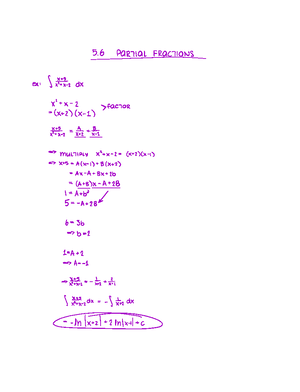 5.6 PARTIAL FRACTIONS
ex: ∫ x+5/x²+x-2 dx
x² + x - 2 > FACTOR
= (x+2)(x-1)
x+5/x²+x-2 = A/x+2 = B/x-1
=> MULTIPLY x²+x-2 = (x+2)(x-1)
=> x+5 = A(x-1) + B(x+2)
= Ax - A + Bx + 2b
= (A+B)x - A + 2B
1 = A+b
5 = -A+2B
6 = 3b
=> b=2
1=A+2
=> A=-1
=> x+5/x²+x-2 = -1/x+2 = 2/x-1
∫ x+5/x²+x-2 dx = -∫ 1/x+2 dx
= -ln|x+2| + 2 ln|x-1| + c